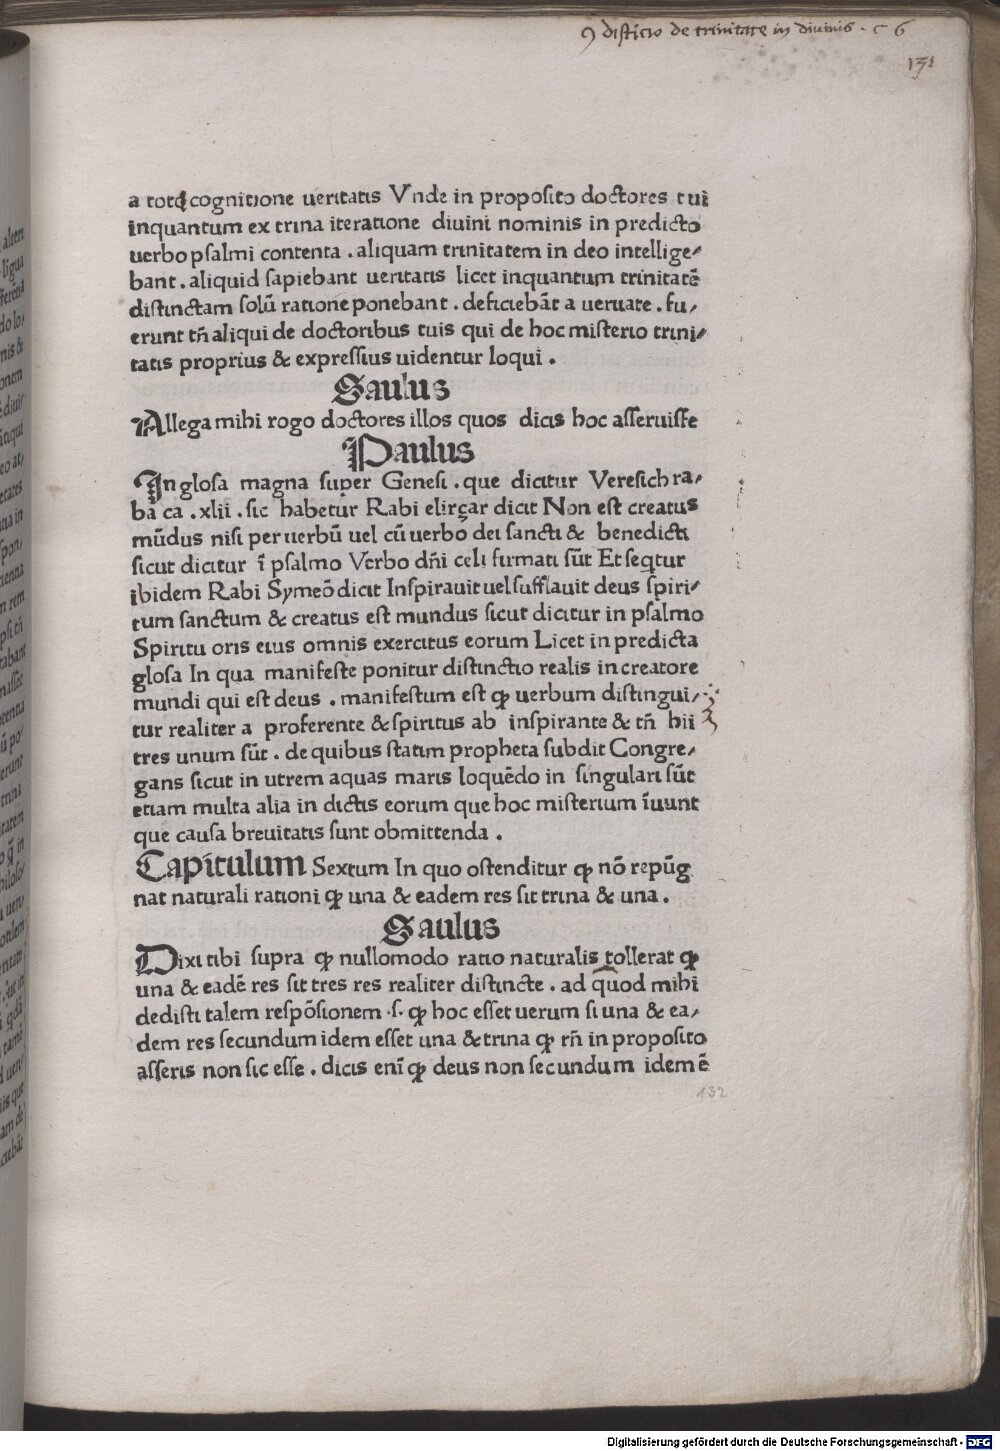 9 distictio de trinitate in diuinis . c 6
131
a tota cognitione ueritatis Vnde in proposito doctores tui
inquantum ex trina iteratione diuini nominis in predicto
uerbo psalmi contenta . aliquam trinitatem in deo intellige⸗
bant . aliquid sapiebant ueritatis licet inquantum trinitatē
distinctam solū ratione ponebant . deficiebāt a ueritate . fu⸗
erunt tñ aliqui de doctoribus tuis qui de hoc misterio trini⸗
tatis proprius & expressius uidentur loqui .
Saulus
Allega mihi rogo doctores illos quos dicis hoc asseruisse
Paulus
In glosa magna super Genesi . que dicitur Veresich ra⸗
ba ca . xlii . sic habetur Rabi elirçar dicit Non est creatus
mūdus nisi per uerbū uel cū uerbo dei sancti & benedicti
sicut dicitur ī psalmo Verbo dñi celi firmati sūt Et seqtur
ibidem Rabi Symeō dicit Inspirauit uel sufflauit deus spiri⸗
tum sanctum & creatus est mundus sicut dicitur in psalmo
Spiritu oris eius omnis exercitus eorum Licet in predicta
glosa In qua manifeste ponitur distinctio realis in creatore
mundi qui est deus . manifestum est ꝙ uerbum distingui⸗
tur realiter a proferente & spiritus ab inspirante & tñ hii
tres unum sūt . de quibus statim propheta subdit Congre⸗
gans sicut in utrem aquas maris loquēdo in singulari sūt
etiam multa alia in dictis eorum que hoc misterium īuunt
que causa breuitatis sunt obmittenda .
Capitulum Sextum In quo ostenditur ꝙ nō repūg
nat naturali rationi ꝙ una & eadem res sit trina & una .
Saulus
Dixi tibi supra ꝙ nullomodo ratio naturalis tollerat ꝙ
una & eadē res sit tres res realiter distincte . ad quod mihi
dedisti talem respōsionem .s. ꝙ hoc esset uerum si una & ea⸗
dem res secundum idem esset una & trina ꝙ tñ in proposito
asseris non sic esse . dicis enī ꝙ deus non secundum idem ē
132
Digitalisierung gefördert durch die Deutsche Forschungsgemeinschaft - DFG